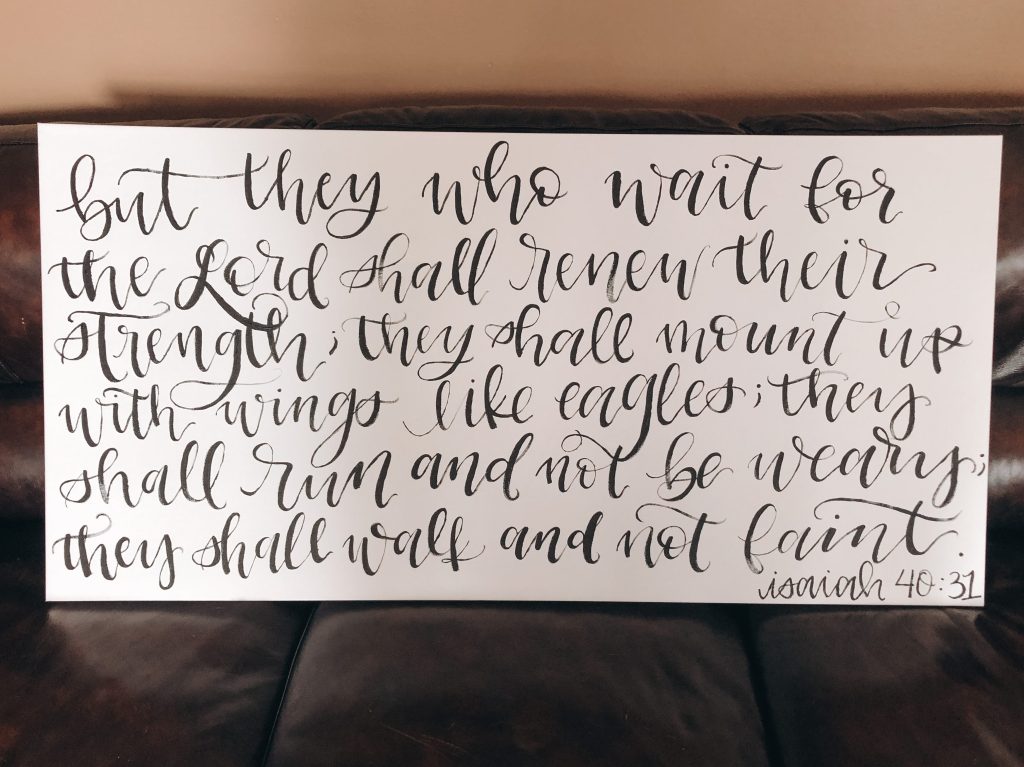 but they who wait for
the Lord shall renew their
strength; they shall mount up
with wings like eagles; they
shall run and not be weary;
they shall walk and not faint.
isaiah 40:31